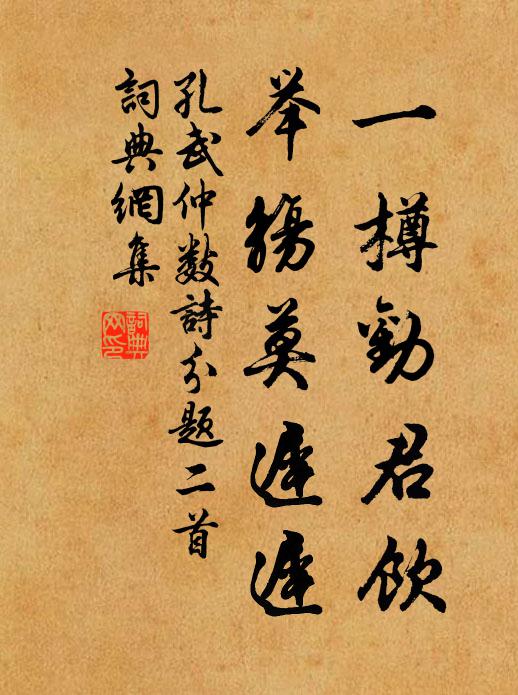 一樽勸君飲
举觴莫遲遲
孔武仲數詩分題二首
詞典網集
詞典网印